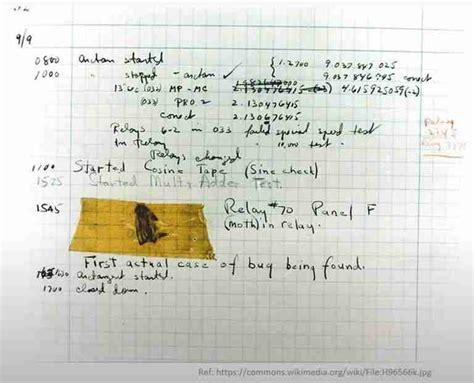 9/9
0800 Antan started
1000 " stopped - antan ✓ { 1.2700 9.037 847 025
9.037 846 995 correct
13"uc (032) MP - MC 2.130476415 (-3) 4.615925059(-2)
(033) PRO 2 2.130476415
correct 2.130676415
Relays 6-2 in 033 failed special speed test
in Relay " 10,000 test.
Relays changed
Relay
1100 Started Cosine Tape (Sine check)
1525 Started Multi Adder Test.
1545 Relay #70 Panel F
(moth) in relay.
First actual case of bug being found.
1630 antangent started.
1700 closed down.
Ref: https://commons.wikimedia.org/wiki/File:H96566k.jpg